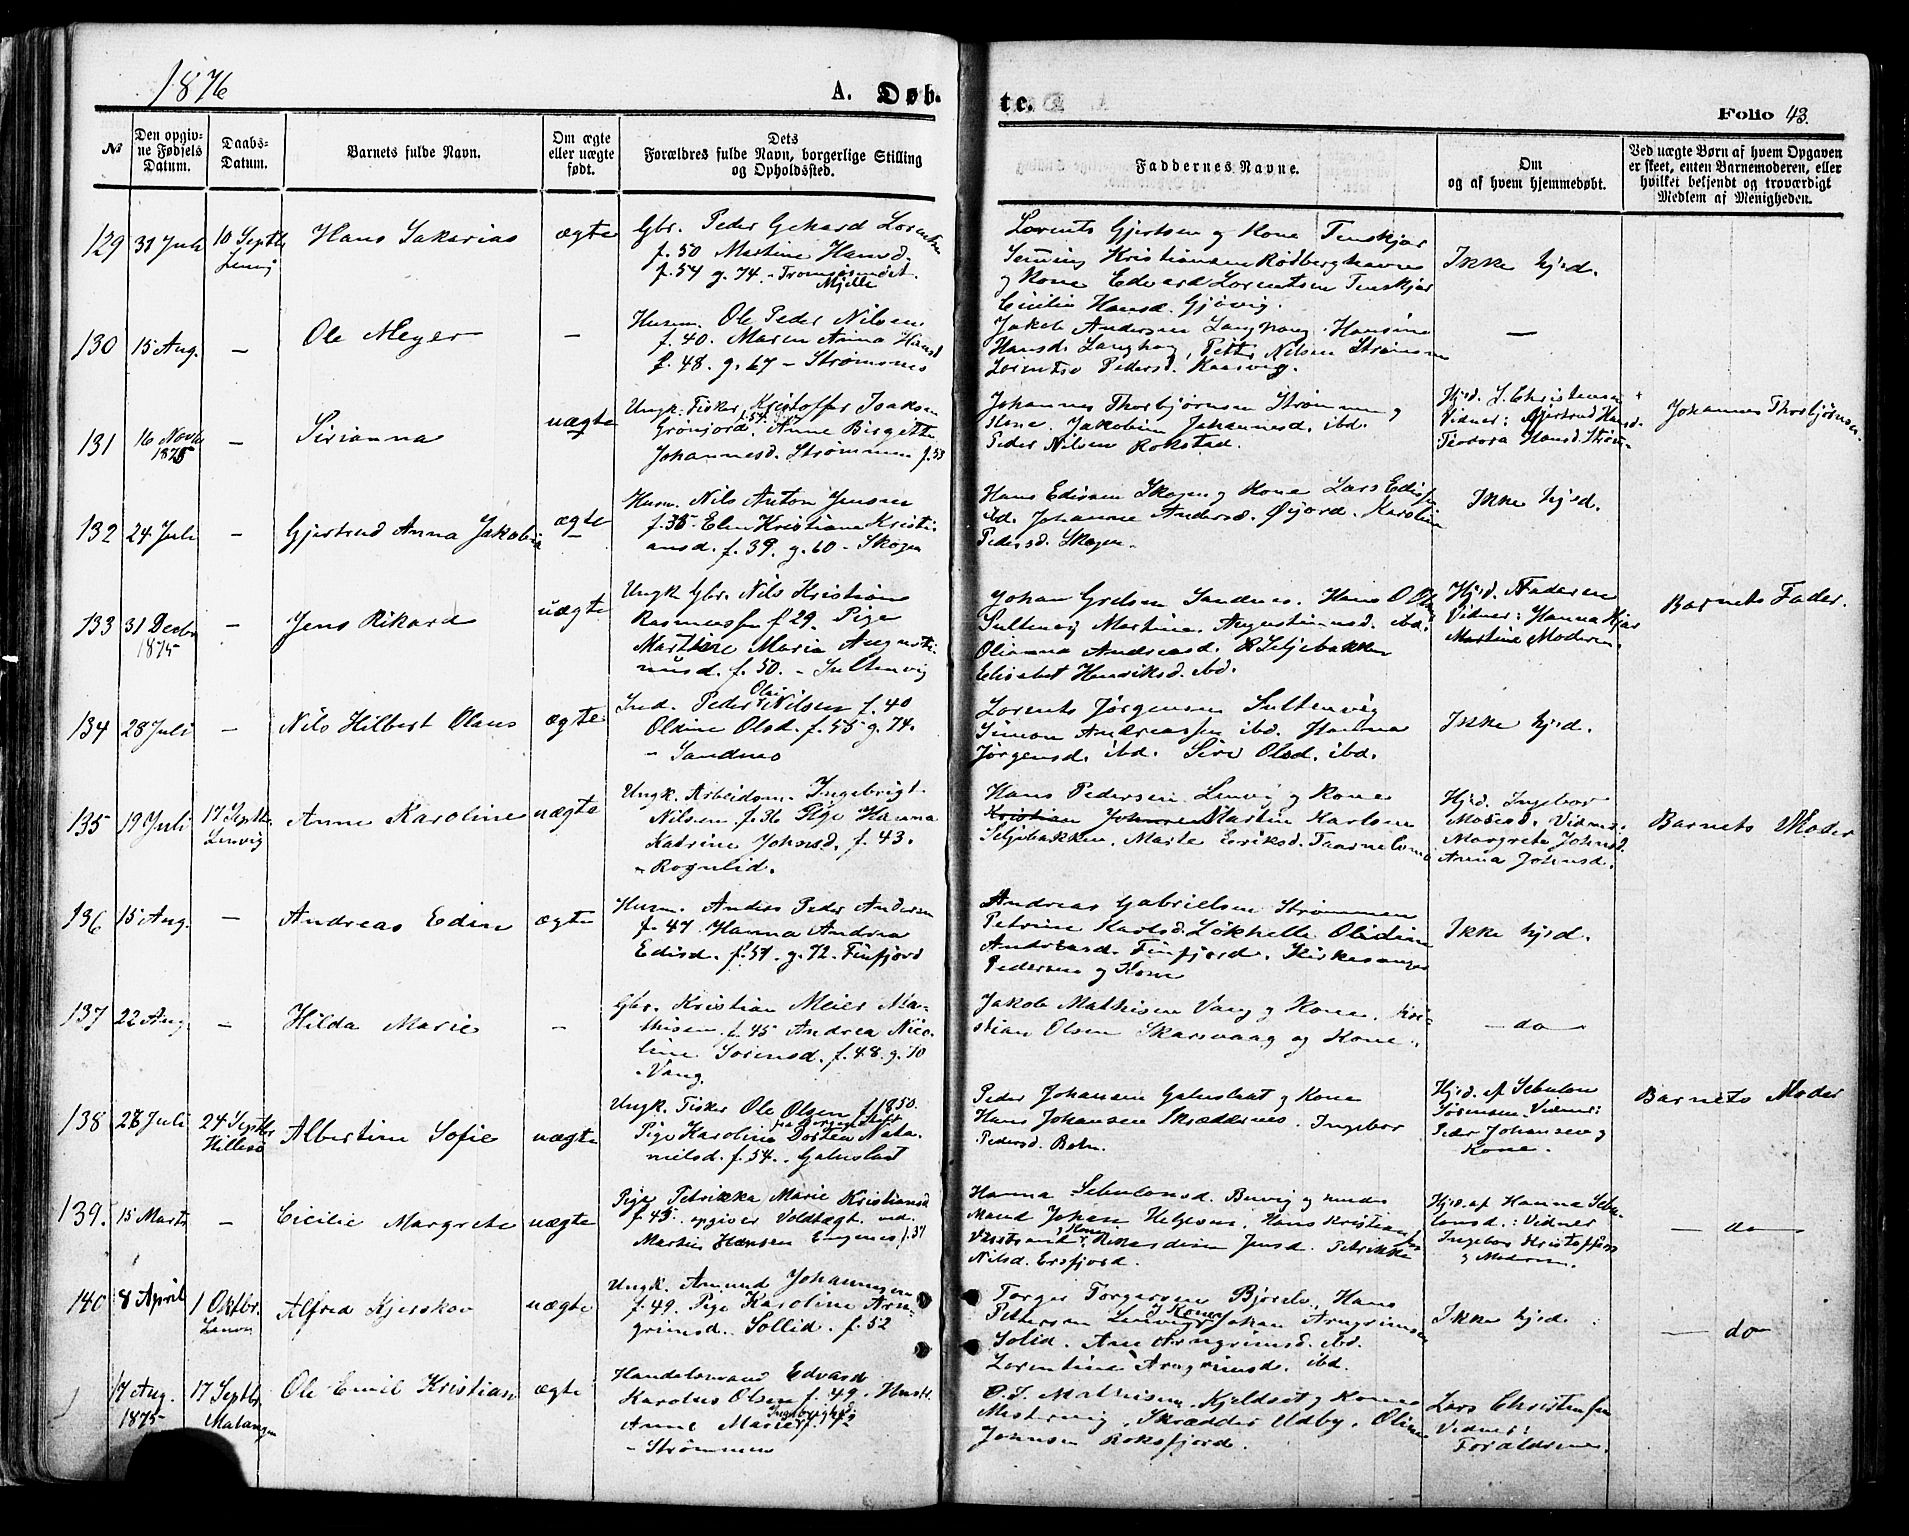 1876
A. Døb-
te.
Folio 43.
№
Den opgiv-
ne Fødsels
Datum.
Daabs-
Datum.
Barnets fulde Navn.
Om ægte
eller uægte
født.
Dets
Forældres fulde Navn, borgerlige Stilling
og Opholdssted.
Faddernes Navne.
Om
og af hvem hjemmedøbt.
Ved uægte Børn af hvem Opgaven
er skeet, enten Barnemoderen, eller
hvilket bekjendt og troværdigt
Medlem af Menigheden.
129 31 Juli 10 Septbr Lenvig
Hans Sakarias
ægte
Gbr. Peder Gerhard Lorentsen
f. 50 Martine Hansd.
f. 54 g. 74. - Tromsøsundet
Mjelle
Lorents Gjertsen og Kone Tenskjær
Kristiansen Rødberghavn
og Kone Edvard Lorentsen Tenskjær
Cicilie Hansd. Gjøvig.
Ikke hjd.
130 15 Aug. -
Ole Meyer
-
Husm. Ole Peder Nilsen
f. 40. Maren Anna Hansd
f. 48. g. 67 - Strømsnes
Jakob Andersen Langhaug. Hansine
Hansd. Langhaug, Petter Nilsen Strømsnes
Pedersd. Kaarvig.
-
131 16 Novbr 1875 -
Sirianna
uægte
Ungk. Fisker Kristoffer Isaksen
f. 54
Grønjord. Anne Birgitte
Johannesd. Strømmen f. 53
Johannes Thorbjørnsen Strømmen og
Kone. Jakobine Johannesd. ibd.
Peder Nilsen Rokstad.
Hjd. J. Christensen
Vidner: Gjertrud Hansd.
Teodora Hansd. Strøm.
Johannes Thorbjørnsen.
132 24 Juli -
Gjertrud Anna Jakobine
ægte
Husm. Nils Anton Jensen
f. 35 Elen Kristiana Kristi-
ansd. f. 39. g. 60 - Skogen
Hans Edissen Skogen og Kone Lars Edissen
ibd. Johanne Andersd. Øijord. Karoline
Pedersd. Skogen.
Ikke hjd.
133 31 Decbr 1875 -
Jens Rikard
uægte
Ungk Gbr. Nils Kristian
Rasmussen f 29. Pige
Martine Maria Augusti-
nusd. f. 50. - Sultenvig
Johan Sandnes. Hans Olsen
Sultenvig Martine Augustinusd. ibd.
Olianna Andreasd. Seljebakken
Elisabet Henriksd. ibd.
Hjd. Faderen
Vidner: Hanna
Martine Moderen.
Barnets Fader.
134 28 Juli -
Nils Hilbert Olaus
ægte
Ind. Peder Nilsen f. 40
Olai
Oline Olsd. f. 55 g. 74.
- Sandnes
Lorents Jørgensen Sultenvig
Simon Andreassen ibd. Hanna
Jørgensd. ibd. Siri Olsd. ibd.
Ikke hjd.
135 19 Juli 17 Septbr Lenvig
Anne Karoline
uægte
Ungk. Arbeidsm. Ingebrigt
Nilsen f. 36 Pige Hanna
Katrine Johnsd. f. 43.
- Rognlid.
Hans Pedersen Lenvig og Kone
Kristian Johnsen Martin Karlsen
Seljebakken, Marte Eriksd.
Hjd. Ingebor
Mosesd. Vidner
Margrete Johnsd.
Anna Johnsd.
Barnets Moder
136 15 Aug. -
Andreas Edin
ægte
Husm. Anders Peder Andersen
f. 47 Hanna Andrea
Edisd. f. 51. g. 72. Finfjord
Andreas Gabrielsen Strømmen
Petrine Karlsd. Løkhelle Olidine
Andreasd. Finfjord. Kirkesanger
Pedersen og Kone
Ikke hjd.
137 22 Aug -
Hilda Marie
-
Gbr. Kristian Meier Ma-
thisen f. 45 Andrea Nico-
line Sørensd. f. 48. g. 70
- Vang.
Jakob Mathisen Vang og Kone. Kri-
stian Olsen Skarsvaag og Kone.
- do -
138 28 Juli 24 Septbr Hillesø
Albertine Sofie
uægte
Ungk. Fisker Ole Olsen f. 1850.
Pige Karoline Dortea Nata-
nielsd. f. 54.
Peder Johansen og Kone
Hans Johansen Skræddernes. Ingebor
Pedersd.
Hjd. af Sebulon
Sørensen. Vidner:
Peder Johansen og
Kone.
Barnets Moder
139. 15 Marts -
Cicilie Margrete
uægte
Pige Petrikka Marie Kristiansd
f. 45. opgiver Voldtægt ved
Martin Hansen f. 37
Hanna Sebulonsd. Buvig og hendes
Mand Johan Helgesen. Hans Kristiansen
og Kone Jensd. Petrikke
Nilsd. Ersfjord.
Hjd. af Hanna Sebu-
lonsd.: Vidner
Ingebor
og Moderen.
- do -
140 8 April 1 Oktbr. Lenvig
Alfred Kjerskov
uægte
Ungk. Amund Johannesen
f. 49. Pige Karoline Arn-
grimsd. Sollid. f. 52
Torger Torgersen Bjorelv, Hans
Petersen Lenvig og Kone Johan Arngrimsen
Solid. Ane Arngrimsd. ibd.
Lorentine Arngrimsd. ibd.
Ikke hjd.
- do -
17 Aug. 1875 17 Septbr. Malangen
Ole Emil Kristian
ægte
Handelsmand Edvard
Karolus Olsen f. 49. Hustr.
Anne Marie f. 42
Ingebrigtsd.
- Strømmen
O. S. Mathisen Kjeldset og Kone
Mestervig. Skrædder Udby. Oline
Johnsen Roksfjord.
Lars Christensen
Vidner:
Forældrene.